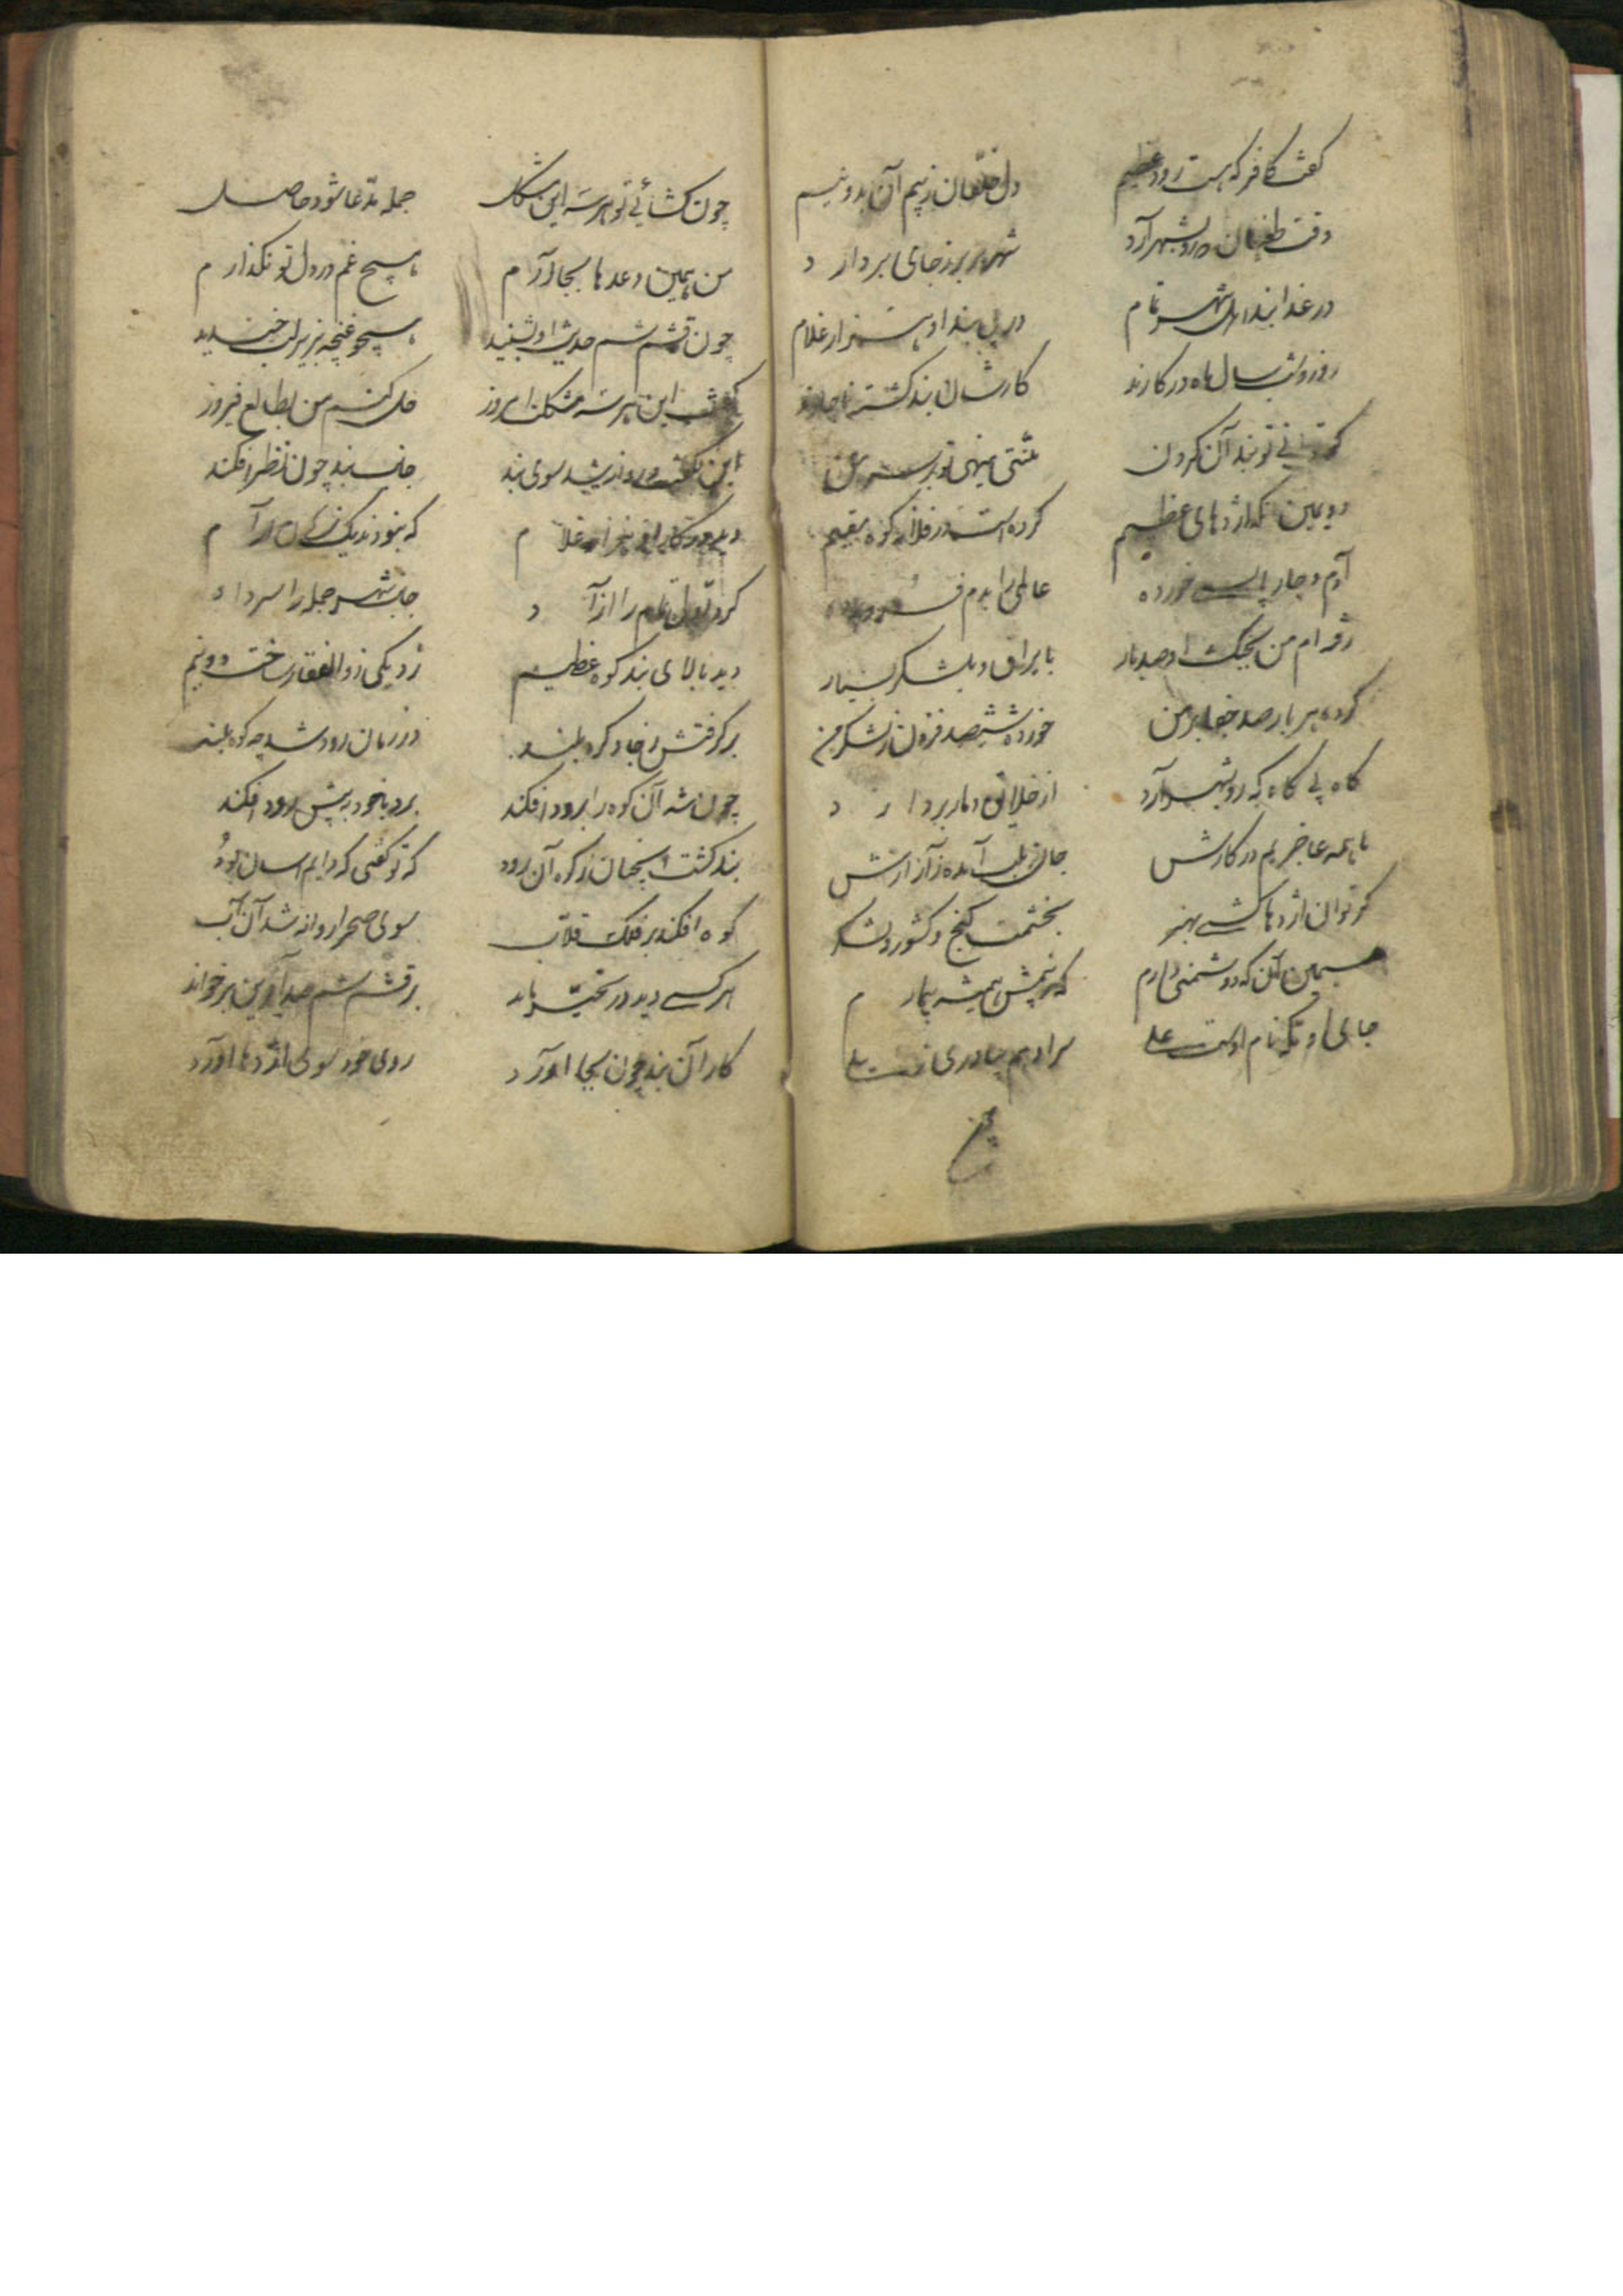 گفت کافر که هست رود عظیم دل خلقان ز بیم آن بدو نیم
وقت طغیان چو رو بشهر آرد شهر بر برز جای بردارد
در عذابند اهل شهر تمام در پی بند او هزار غلام
روز و شب سال و ماه در کارند کارشان بند کشته ناچارند
گر توانی تو بند آن کردن منتی مینهی تو بر سر من
دویمین آنکه اژدهای عظیم کرده است در فلان کوه مقیم
آدم و چارپا بسی خورده عالمی را بدم فرو برده
رفته ام من بجنگ او صد بار با یراق و بلشکر بسیار
کرده هر بار صد جفا بر من خورده ششصد فزون ز لشکر من
گاه بی گاه که رو بشهر آرد از خلایق دمار بردارد
ما همه عاجزیم در کارش جان بلب آمده ز آزارش
گر توان اژدها کشی بهنر بخشمت گنج و کشور و لشکر
سیمین آنکه دشمنی دارم که ز بیمش همیشه بیمارم
جای او مکه نام اوست علی
چون
چون گشائی تو هر سه این مشکل جمله مدعا شود حاصل
من همین وعدها بجا آرم هیچ غم در دل تو نگذارم
چون قشمشم حدیث او بشنید همچو غنچه بزیر لب خندید
گفت این هر سه مشکلت امروز حل کنم من بطالع فیروز
این بگفت و روانه شد سوی بند جانب بند چون نظر افکند
دید در کار او هزار غلام که نبودند یک نفس آرام
کرد آن قوم را تمام آزاد جانب شهر جمله را سر داد
دید بالای بند کوه عظیم زد یکی ذوالفقار ساخت دو نیم
برگرفتش ز جا و کرد بلند در زمان رود شد چه کوه بلند
چون شه آن کوه را برود افکند برد با خود به پیش رود افکند
بند گشت آنچنان ز که آن رود که تو گفتی که دایم اینسان بود
کوه افکند بر فلک قلاب سوی صحرا روانه شد آن آب
هر کسی دید در تحیر ماند بر قشمشم صد آفرین برخواند
کار آن بند چون بجا آورد روی خود سوی اژدها آورد